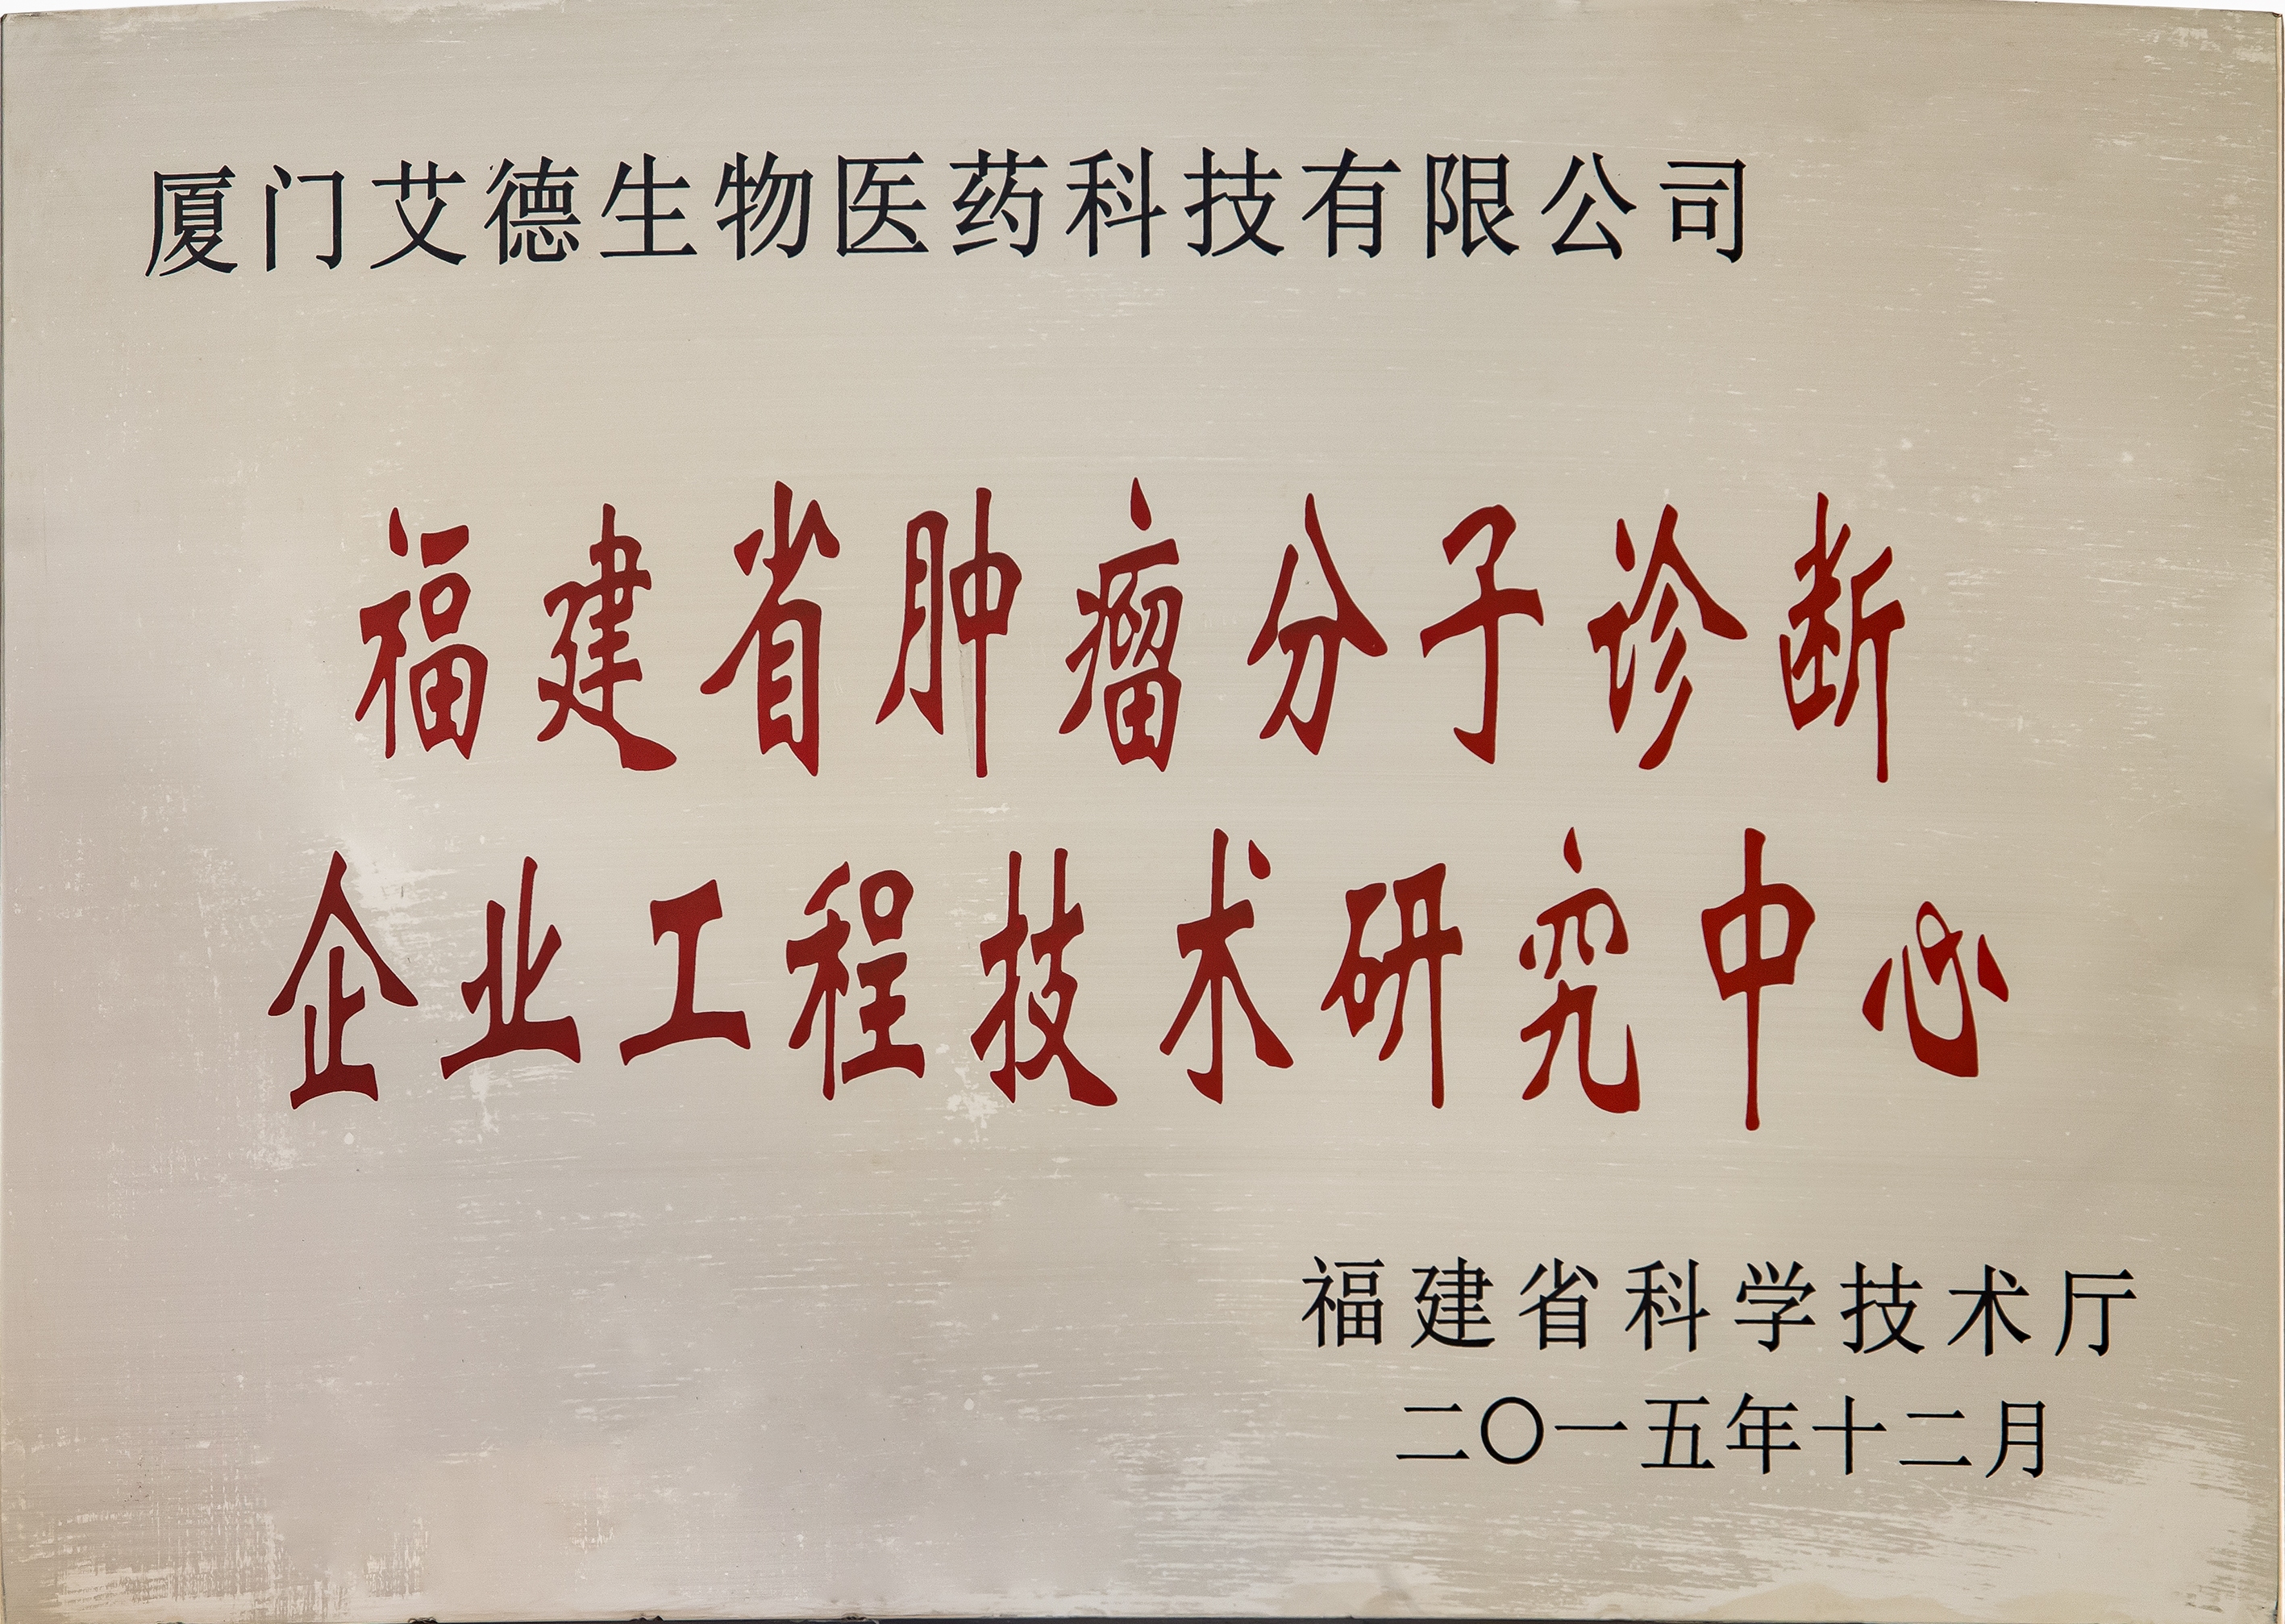 厦门艾德生物医药科技有限公司
福建省肿瘤分子诊断
企业工程技术研究中心
福建省科学技术厅
二〇一五年十二月